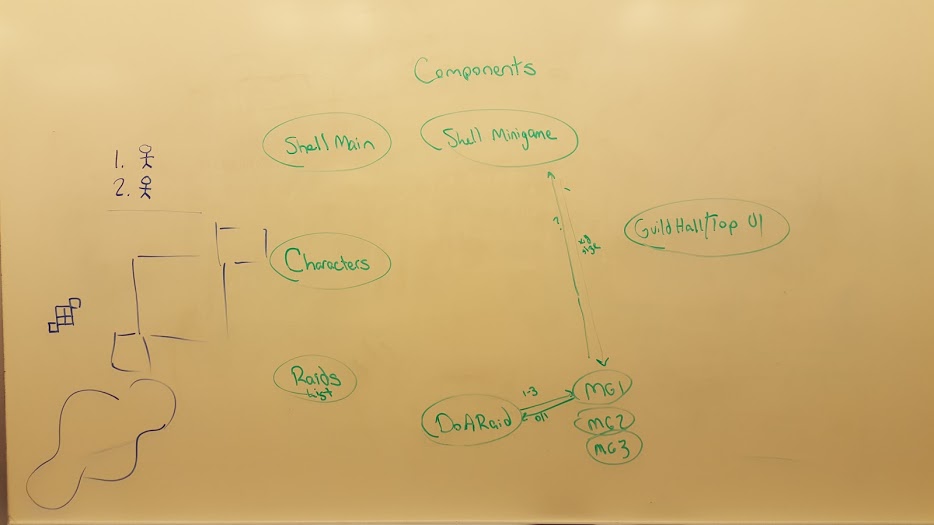 Components
Shell Main
Shell Minigame
1.
2.
Guild Hall/Top UI
Characters
?
Raids
List
1-3
MG1
DoARaid
0/1
MG2
MG3